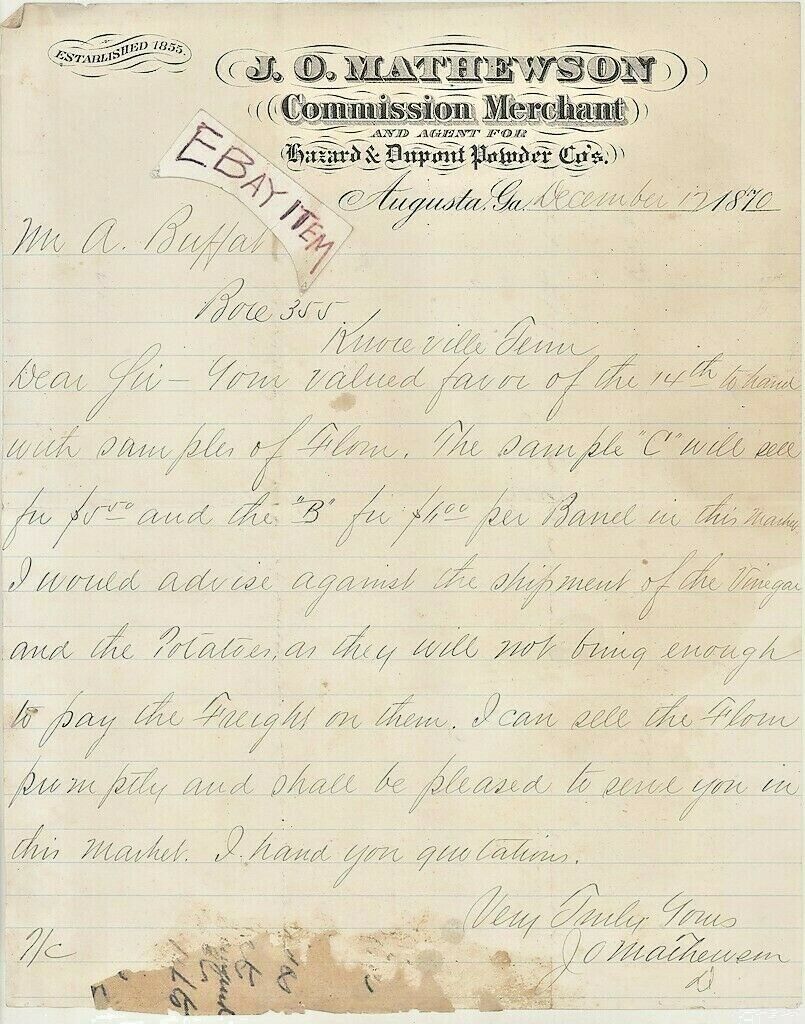 ESTABLISHED 1855.
J. O. MATHEWSON
Commission Merchant
AND AGENT FOR
Hazard & Dupont Powder Co's.
EBAY ITEM
Augusta, Ga. December 17 1870
Mr A. Buffat
Box 355
Knoxville Tenn
Dear Sir – Your valued favor of the 14th to hand
with samples of Flour. The sample "C" will sell
for $5.50 and the "B" for $6.00 per Barrel in this Market.
I would advise against the shipment of the Vinegar
and the Potatoes, as they will not bring enough
to pay the Freight on them. I can sell the Flour
promptly and shall be pleased to serve you in
this Market. I hand you quotations.
Very Truly Yours
J O Mathewson